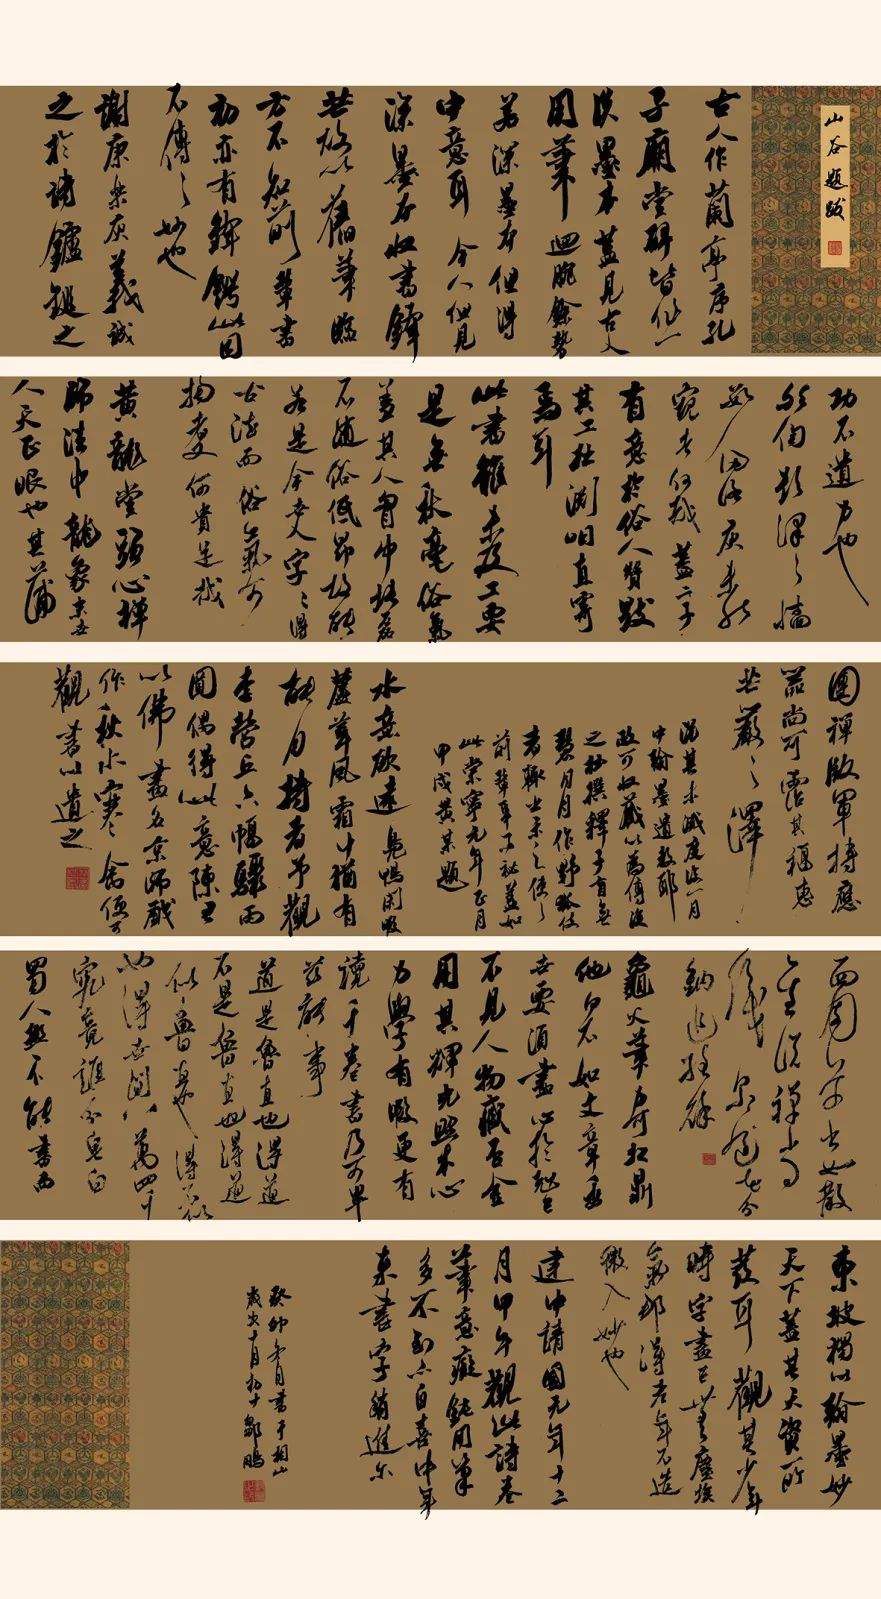 山谷題跋
古人作蘭亭序孔
子廟堂碑皆作一
淡墨本蓋見古人
用筆迴腕餘勢
若深墨本但得
中意耳今人但見
深墨本收書鋒
芒故以舊筆臨
方不知前輩書
初亦有鋒鍔此固
不傳之妙也
謝康樂庾義誠
之於詩鑪錘之
功不遺力也
然陶彭澤之墻
數仞謝庾未能
窺者何哉蓋二子
有意於俗人贊毀
其工拙淵明直寄
焉耳
此書雖未及工要
是無秋毫俗氣
蓋其人胸中塊磊
不隨俗低昂故能
若是今世人字字得
古法而俗氣可
掬者又何貴足哉
黃龍堂頭心禪
師法中龍象末世
人天正眼也其蒲
團禪版軍持應
器尚可霑其福惠
芒嚴之澤
況其未滅度後一月
中翰墨遺教耶
政可收藏以為傳後
之抄撰釋子有無
月作野狐伎
者輒出示之使
前輩耳不祕蓋如
此崇寧元年正月
甲戌黃某題
水意欲遠鳧鴨閑暇
蘆葦風霜中猶有
能自持者予觀
李營丘六幅驟雨
圖偶得此意陳君
以佛畫名京師戲
作秋水寒禽便可
觀書以遺之
龜父筆力可扛鼎
他日不如文章垂
世要須盡心於克己
不見人物臧否全
用其輝光照本心
力學有暇更有
讀千卷書乃可畢
茲能事
道是魯直也得道
不是魯直也得道
似魯直也得
也得世間八萬四千
究竟誰分皂白
蜀人極不能書而
東坡獨以翰墨妙
天下蓋其天資所
發耳觀其少年
時字畫已無塵埃
氣那得老年不造
微入妙也
建中靖國元年十二
月甲午觀此詩卷
筆意癡鈍用筆
多不到亦自喜中年
來書字稍進爾
癸卯年月書于相山
歲次十月初十鄒鵬